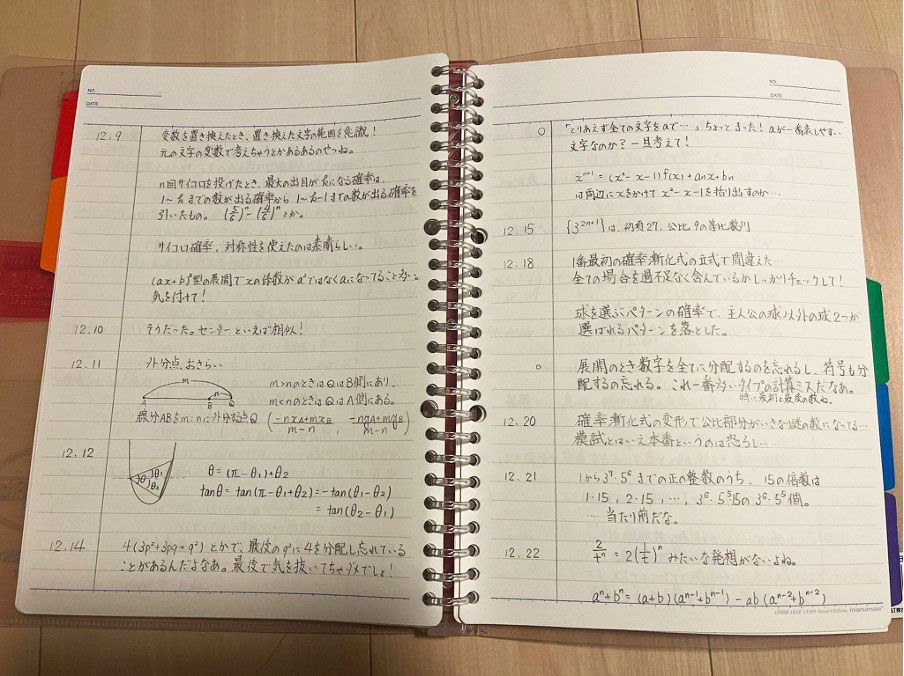 NO.
DATE
12.9 変数を置き換えたとき、置き換えた文字の範囲を意識！
元の文字の変数で考えちゃうとかあるあるのやつね。
n回サイコロを投げたとき、最大の出目がkになる確率は、
1〜kまでの数が出る確率から 1〜k-1までの数が出る確率を
引いたもの。 とか。
サイコロ確率、対称性を使えたのは素晴らしい。
型の展開でxの係数が ではなく になってること
気を付けて！
12.10 そうだった。センターといえば相似！
12.11 外分点、おさらい
m
n
A
B
Q
m>nのときはQはB側にあり、
m<nのときはQはA側にある。
線分ABをm:nに外分する点Q (-nxA+mxB/m-n , -nyA+myB/m-n)
12.12
θ
θ1
θ2
θ = (π-θ1)+θ2
tanθ = tan(π-θ1+θ2) = -tan(θ1-θ2)
= tan(θ2-θ1)
12.14 4(3p²+3pq+q²) とかで、最後のq²に4を分配し忘れている
ことがあるんだよなあ。最後で気を抜いてちゃダメでしょ！
NO.
DATE
○ 「とりあえず全ての文字をaで…」ちょっとまった！aが一番表しやすい
文字なのか？一旦考えて！
xⁿ⁺¹ = (x²-x-1)f(x)+anx+bn
は両辺にxをかけて x²-x-1を括り出すのか…
12.15 {3²ⁿ⁺¹}は、初項27、公比9の等比数列
12.18 1番最初の確率漸化式の立式で間違えた…
全ての場合を過不足なく含んでいるかしっかりチェックして！
球を選ぶパターンの確率で、主人公の球以外の球2つが
選ばれるパターンを落とした。
○ 展開のとき数字を全てに分配するのを忘れるし、符号も分
配するの忘れる。これ一番多いタイプの計算ミスだなあ。
特に最初と最後の数ね。
12.20 確率漸化式の変形で公比部分がいきなり謎の数になってる…
模試とはいえ本番というのは恐ろしい…
12.21 1から3⁷·5⁶までの正の整数のうち、15の倍数は
1·15, 2·15, …, 3⁶·5⁵·15の3⁶·5⁵個。
…当たり前だな。
12.22 みたいな発想がないよね。
aⁿ+bⁿ = (a+b)(aⁿ⁻¹+bⁿ⁻¹) - ab(aⁿ⁻²+bⁿ⁻²)